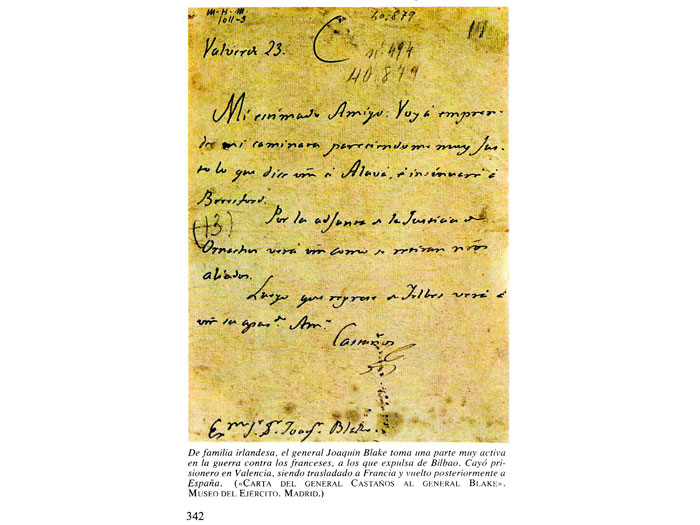 M-H-M.
1011-3
40:879
Valverde 23.
nº 494
40.879
Mi estimado Amigo: Voy á empren-
der mi caminata pareciendome muy Jus-
to lo que dice vm á Alavá, é insinuaré á
Beresford.
(13)
Por la adjunta de la Justicia de
Ornachos verá vm como se retiran nros
aliados.
Luego que regrese de Jelbes verá á
vm su apasdo. Amo.
Castaños
Exmo. Sr. Dn. Joaqn. Blake.
De familia irlandesa, el general Joaquín Blake toma una parte muy activa
en la guerra contra los franceses, a los que expulsa de Bilbao. Cayó pri-
sionero en Valencia, siendo trasladado a Francia y vuelto posteriormente a
España. («CARTA DEL GENERAL CASTAÑOS AL GENERAL BLAKE».
MUSEO DEL EJÉRCITO. MADRID.)
342